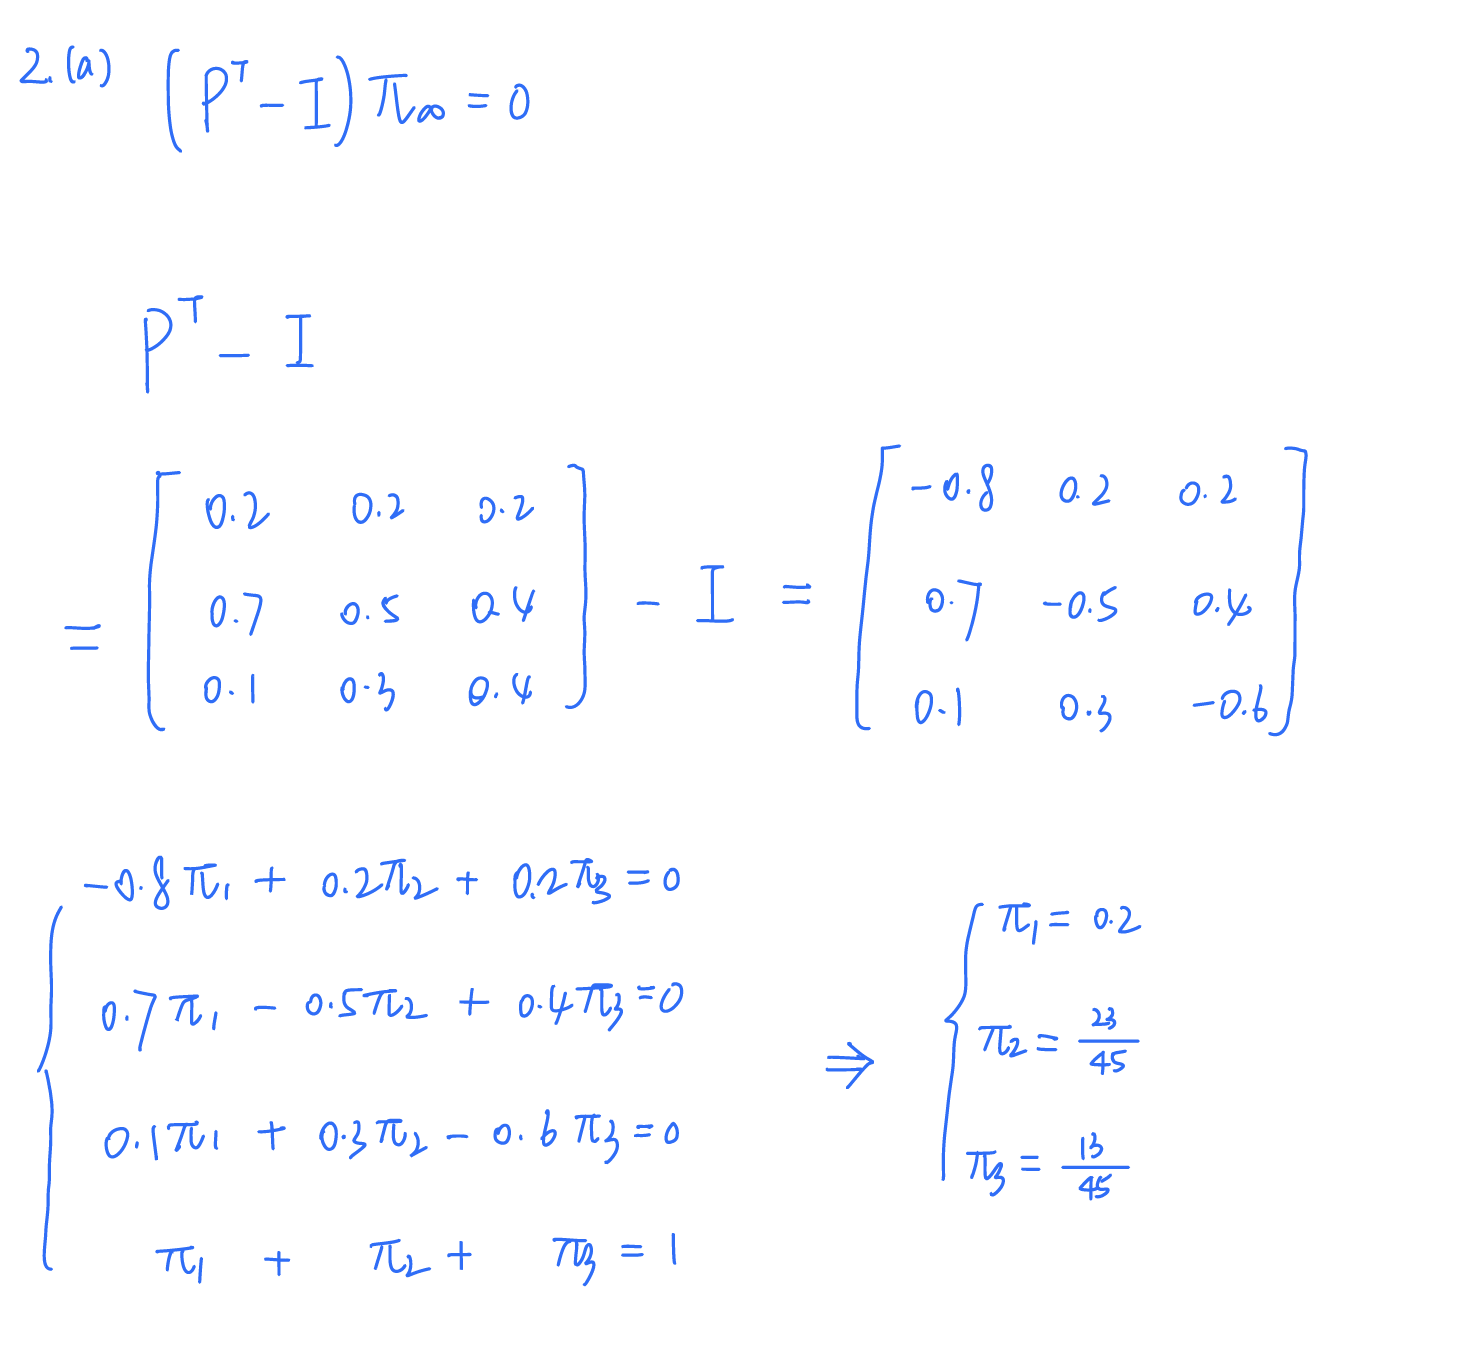 2.(a) (Pᵀ - I) π∞ = 0
Pᵀ - I
= [ 0.2 0.2 0.2 ; 0.7 0.5 0.4 ; 0.1 0.3 0.4 ] - I = [ -0.8 0.2 0.2 ; 0.7 -0.5 0.4 ; 0.1 0.3 -0.6 ]
-0.8π₁ + 0.2π₂ + 0.2π₃ = 0
0.7π₁ - 0.5π₂ + 0.4π₃ = 0
0.1π₁ + 0.3π₂ - 0.6π₃ = 0
π₁ + π₂ + π₃ = 1
⇒
π₁ = 0.2
π₂ = 23/45
π₃ = 13/45